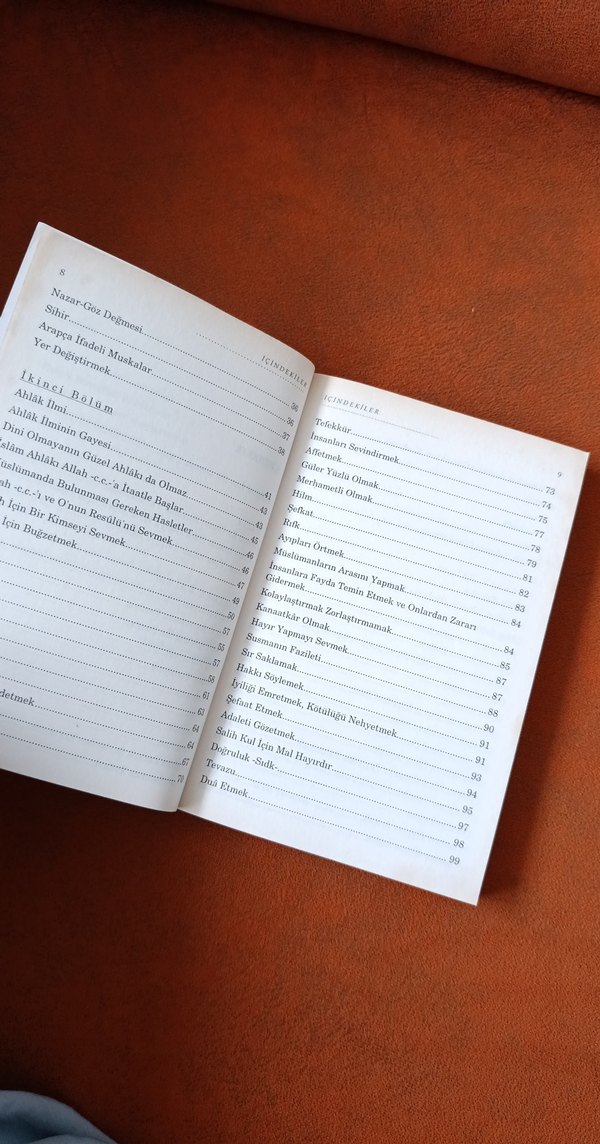 8
İÇİNDEKİLER
Nazar-Göz Değmesi........36
Sihir........36
Arapça İfadeli Muskalar........37
Yer Değiştirmek........38
İkinci Bölüm
Ahlâk İlmi........41
Ahlâk İlminin Gayesi........43
Dini Olmayanın Güzel Ahlâkı da Olmaz........43
İslâm Ahlâkı Allah -c.c.-'a İtaatle Başlar........45
üslümanda Bulunması Gereken Hasletler........46
ah -c.c.-'ı ve O'nun Resûlü'nü Sevmek........46
h İçin Bir Kimseyi Sevmek........47
İçin Buğzetmek........49
........50
........55
........57
........58
........61
........63
detmek........64
........64
........67
........70
İÇİNDEKİLER
9
Tefekkür........73
İnsanları Sevindirmek........74
Affetmek........75
Güler Yüzlü Olmak........77
Merhametli Olmak........78
Hilm........79
Şefkat........81
Rıfk........82
Ayıpları Örtmek........83
Müslümanların Arasını Yapmak........84
İnsanlara Fayda Temin Etmek ve Onlardan Zararı
Gidermek........84
Kolaylaştırmak Zorlaştırmamak........85
Kanaatkâr Olmak........87
Hayır Yapmayı Sevmek........87
Susmanın Fazileti........88
Sır Saklamak........90
Hakkı Söylemek........91
İyiliği Emretmek, Kötülüğü Nehyetmek........91
Şefaat Etmek........93
Adaleti Gözetmek........94
Salih Kul İçin Mal Hayırdır........95
Doğruluk -Sıdk-........97
Tevazu........98
Duâ Etmek........99